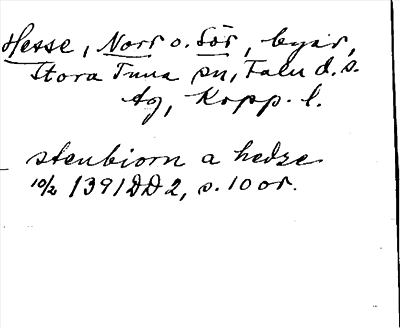 Hesse, Norr o. Sör, byar,
Stora Tuna sn, Falu d.s.
tg, Kopp. l.
stenbiorn a hedze
10/2 1391 DD 2, s. 10 or.